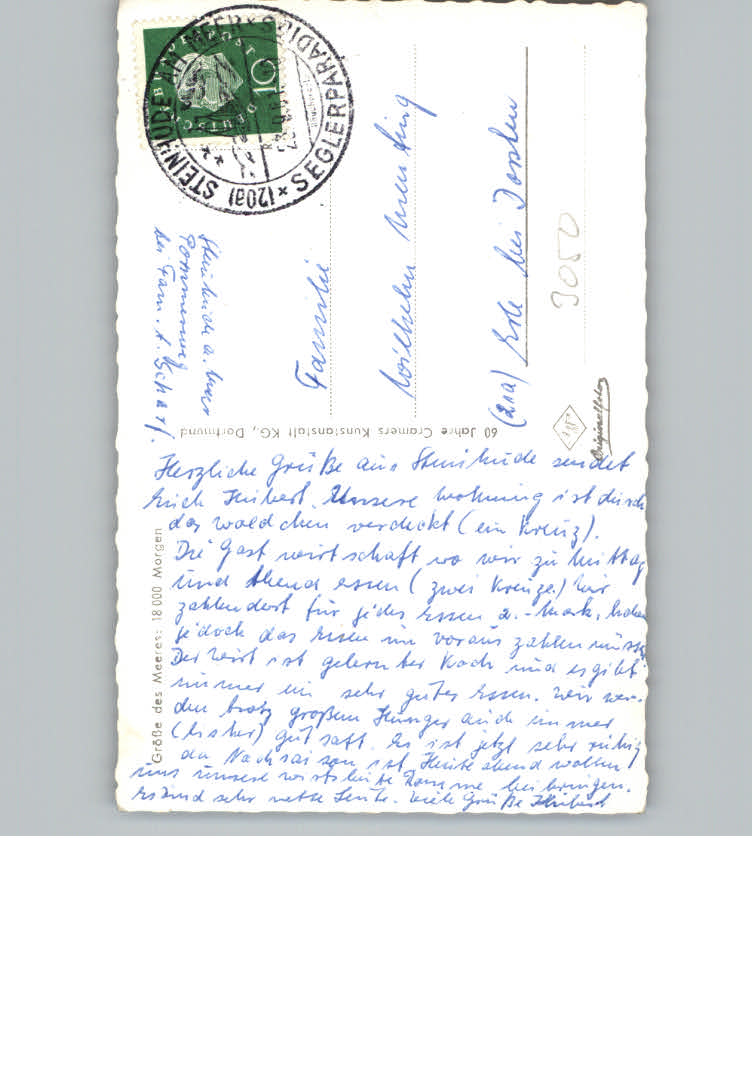 DEUTSCHE BUNDESPOST
10
(20a) STEINHUDE AM MEER
SEGLERPARADIES
Steinhude a. Meer
bei Fam. A. Scharf.
Familie
Wilhelm Menting
(21a) Erle bei Dorsten
3050
60 Jahre Cramers Kunstanstalt KG., Dortmund
Originalfoto
Größe des Meeres: 18 000 Morgen
Herzliche Grüße aus Steinhude sendet
Euch Hubert. Unsere Wohnung ist durch
das Wäldchen verdeckt (ein Kreuz).
Die Gastwirtschaft wo wir zu Mittag
und Abend essen (zwei Kreuze) Wir
zahlen dort für jedes Essen 2.- Mark, haben
jedoch das Essen im voraus zahlen müssen
Der Wirt ist gelernter Koch und es gibt
immer ein sehr gutes Essen. Wir wer-
den trotz großem Hunger auch immer
(bisher) gut satt. Es ist jetzt sehr ruhig
da Nachsaison ist. Heute abend wollen
uns unsere Wirtsleute
Es sind sehr nette Leute. Viele Grüße Hubert